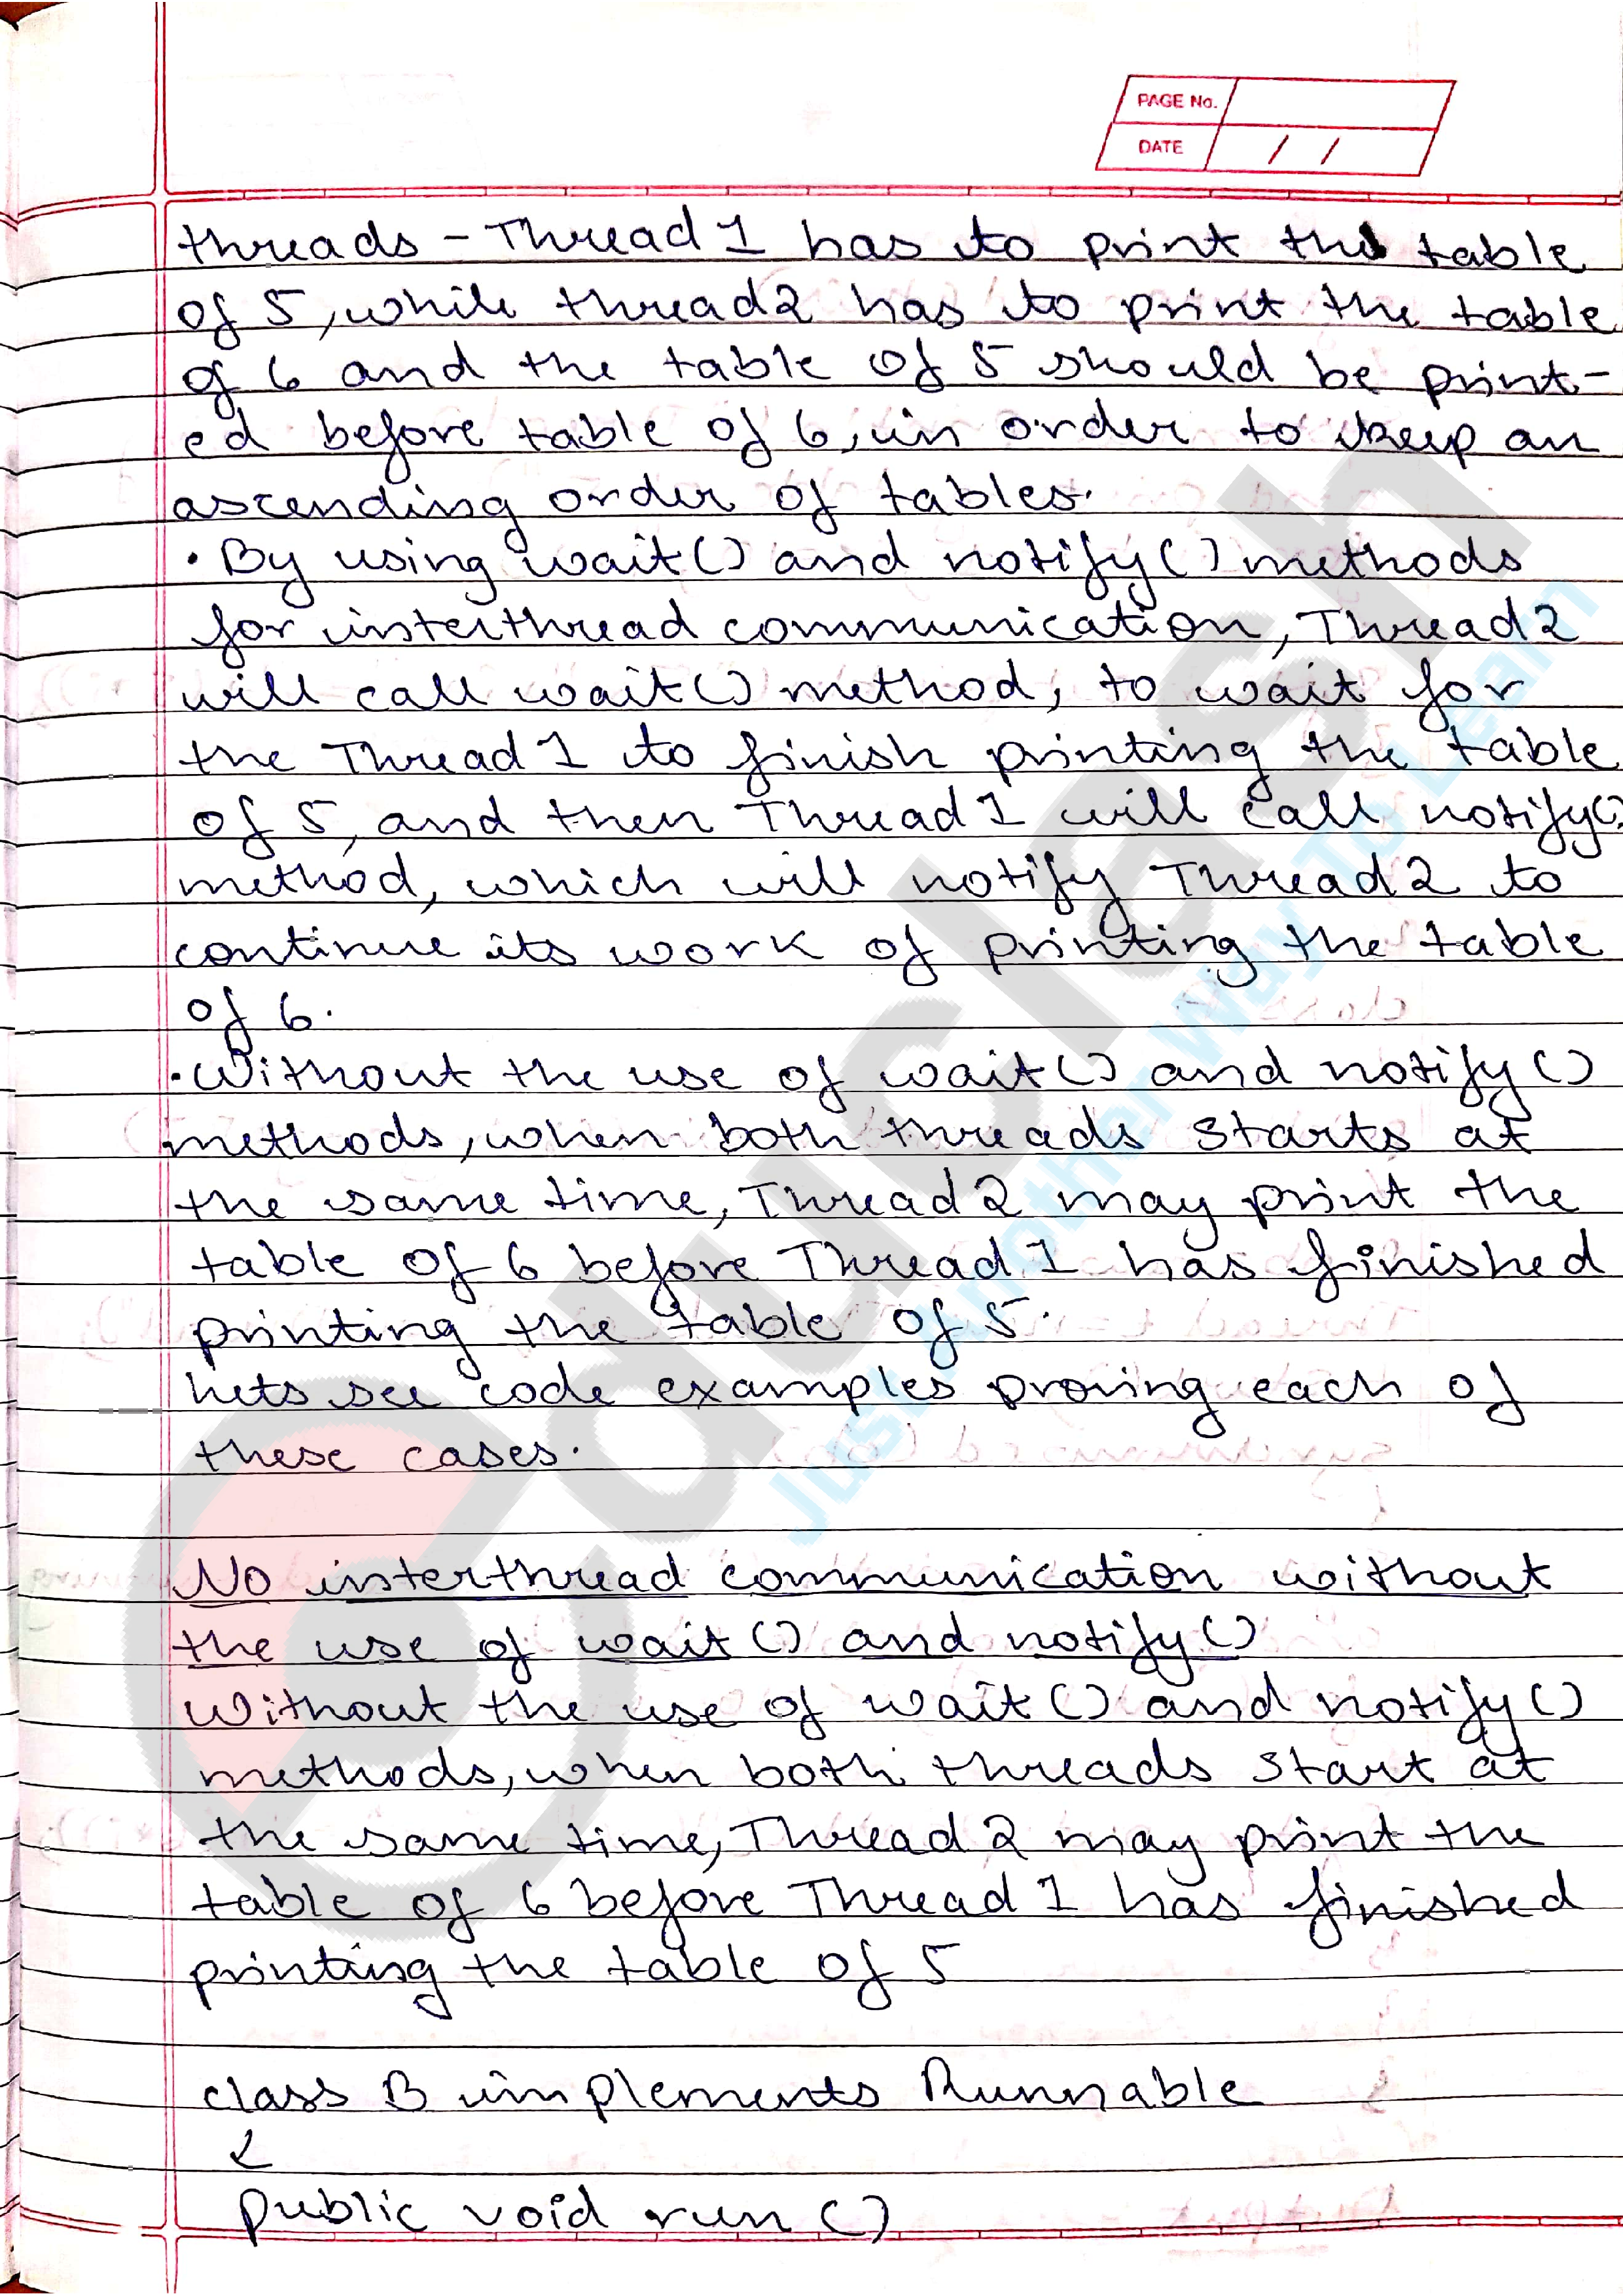 PAGE No.
DATE / /
threads - Thread 1 has to print the table
of 5, while thread 2 has to print the table
of 6 and the table of 5 should be print-
ed before table of 6, in order to keep an
ascending order of tables.
• By using wait() and notify() methods
for interthread communication, Thread 2
will call wait() method, to wait for
the Thread 1 to finish printing the table
of 5, and then Thread 1 will call notify()
method, which will notify Thread 2 to
continue its work of printing the table
of 6.
• Without the use of wait() and notify()
methods, when both threads starts at
the same time, Thread 2 may print the
table of 6 before Thread 1 has finished
printing the table of 5.
Lets see code examples proving each of
these cases.
No interthread communication without
the use of wait() and notify()
Without the use of wait() and notify()
methods, when both threads start at
the same time, Thread 2 may print the
table of 6 before Thread 1 has finished
printing the table of 5
class B implements Runnable
{
public void run()
educlash
Just Another Way To Learn